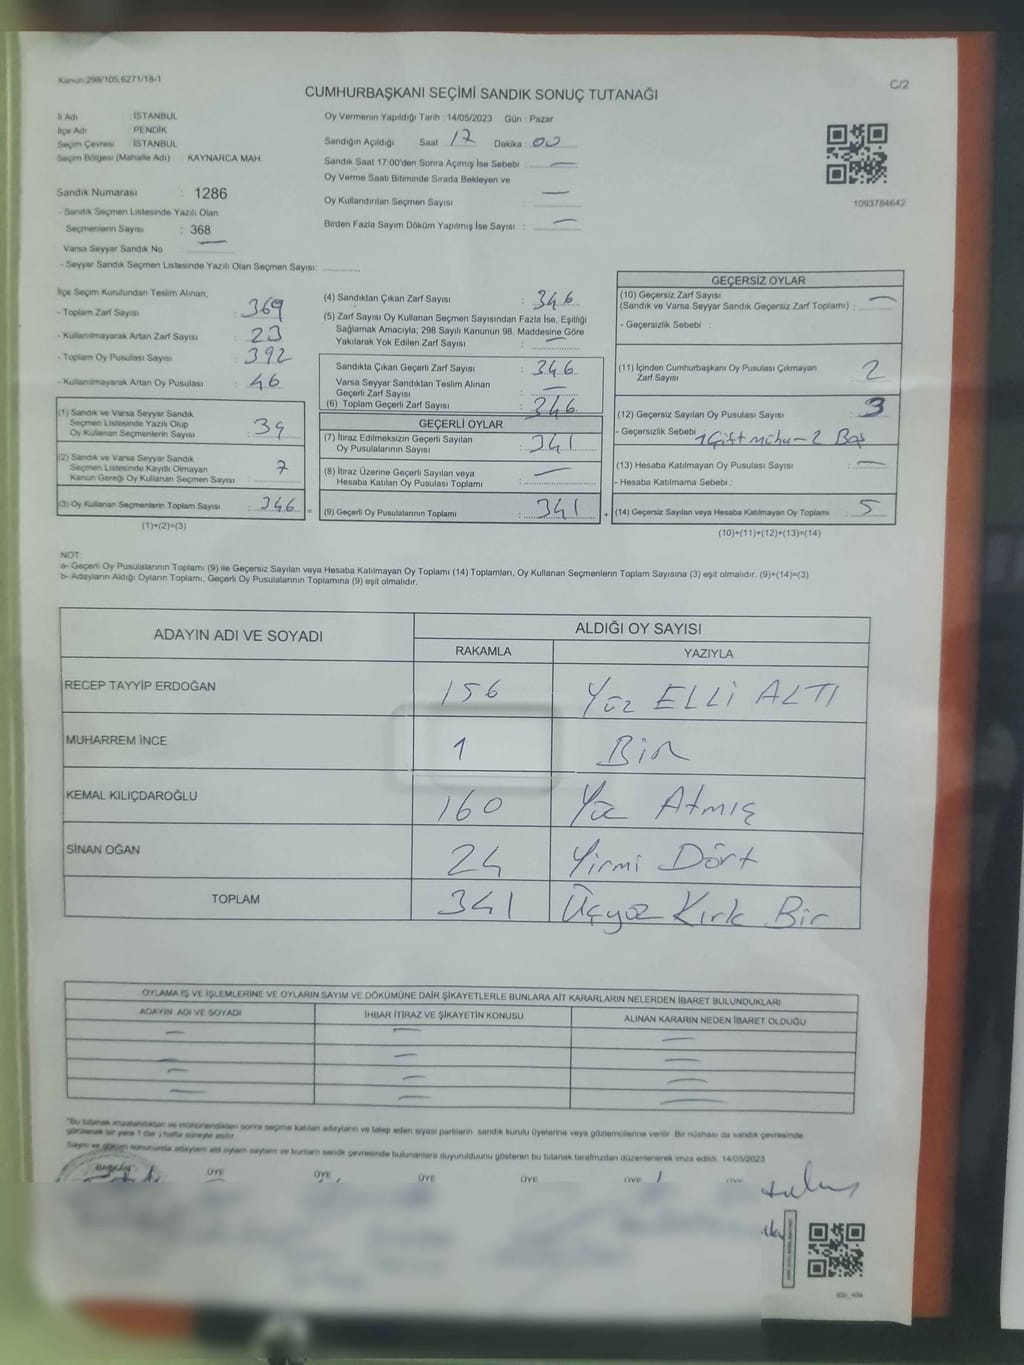 Kanun:298/105,6271/18-1
C/2
CUMHURBAŞKANI SEÇİMİ SANDIK SONUÇ TUTANAĞI
İl Adı İSTANBUL
İlçe Adı PENDİK
Seçim Çevresi İSTANBUL
Seçim Bölgesi (Mahalle Adı) KAYNARCA MAH.
Sandık Numarası : 1286
- Sandık Seçmen Listesinde Yazılı Olan
Seçmenlerin Sayısı : 368
Varsa Seyyar Sandık No
- Seyyar Sandık Seçmen Listesinde Yazılı Olan Seçmen Sayısı:
Oy Vermenin Yapıldığı Tarih : 14/05/2023 Gün : Pazar
Sandığın Açıldığı Saat 17 Dakika : 00
Sandık Saat 17:00'den Sonra Açılmış İse Sebebi :
Oy Verme Saati Bitiminde Sırada Bekleyen ve
Oy Kullandırılan Seçmen Sayısı :
Birden Fazla Sayım Döküm Yapılmış İse Sayısı :
1093784642
İlçe Seçim Kurulundan Teslim Alınan;
- Toplam Zarf Sayısı : 369
- Kullanılmayarak Artan Zarf Sayısı : 23
- Toplam Oy Pusulası Sayısı : 392
- Kullanılmayarak Artan Oy Pusulası : 46
(1) Sandık ve Varsa Seyyar Sandık
Seçmen Listesinde Yazılı Olup
Oy Kullanan Seçmenlerin Sayısı : 39
(2) Sandık ve Varsa Seyyar Sandık
Seçmen Listesinde Kayıtlı Olmayan
Kanun Gereği Oy Kullanan Seçmen Sayısı : 7
(3) Oy Kullanan Seçmenlerin Toplam Sayısı : 346
(1)+(2)=(3)
(4) Sandıktan Çıkan Zarf Sayısı : 346
(5) Zarf Sayısı Oy Kullanan Seçmen Sayısından Fazla İse, Eşitliği
Sağlamak Amacıyla; 298 Sayılı Kanunun 98. Maddesine Göre
Yakılarak Yok Edilen Zarf Sayısı :
Sandıkta Çıkan Geçerli Zarf Sayısı : 346
Varsa Seyyar Sandıktan Teslim Alınan
Geçerli Zarf Sayısı :
(6) Toplam Geçerli Zarf Sayısı : 346
GEÇERLİ OYLAR
(7) İtiraz Edilmeksizin Geçerli Sayılan
Oy Pusulalarının Sayısı : 341
(8) İtiraz Üzerine Geçerli Sayılan veya
Hesaba Katılan Oy Pusulası Toplamı :
(9) Geçerli Oy Pusulalarının Toplamı : 341
GEÇERSİZ OYLAR
(10) Geçersiz Zarf Sayısı
(Sandık ve Varsa Seyyar Sandık Geçersiz Zarf Toplamı) :
- Geçersizlik Sebebi :
(11) İçinden Cumhurbaşkanı Oy Pusulası Çıkmayan
Zarf Sayısı : 2
(12) Geçersiz Sayılan Oy Pusulası Sayısı : 3
- Geçersizlik Sebebi : 1 Çift mühü-2 Boş
(13) Hesaba Katılmayan Oy Pusulası Sayısı :
- Hesaba Katılmama Sebebi :
(14) Geçersiz Sayılan veya Hesaba Katılmayan Oy Toplamı : 5
(10)+(11)+(12)+(13)=(14)
NOT:
a- Geçerli Oy Pusulalarının Toplamı (9) ile Geçersiz Sayılan veya Hesaba Katılmayan Oy Toplamı (14) Toplamları, Oy Kullanan Seçmenlerin Toplam Sayısına (3) eşit olmalıdır. (9)+(14)=(3)
b- Adayların Aldığı Oyların Toplamı, Geçerli Oy Pusulalarının Toplamına (9) eşit olmalıdır.
ADAYIN ADI VE SOYADI
ALDIĞI OY SAYISI
RAKAMLA YAZIYLA
RECEP TAYYİP ERDOĞAN 156 Yüz ELLİ ALTI
MUHARREM İNCE 1 Bir
KEMAL KILIÇDAROĞLU 160 Yüz Atmış
SİNAN OĞAN 24 Yirmi Dört
TOPLAM 341 Üçyüz Kırk Bir
OYLAMA İŞ VE İŞLEMLERİNE VE OYLARIN SAYIM VE DÖKÜMÜNE DAİR ŞİKAYETLERLE BUNLARA AİT KARARLARIN NELERDEN İBARET BULUNDUKLARI
ADAYIN ADI VE SOYADI İHBAR İTİRAZ VE ŞİKAYETİN KONUSU ALINAN KARARIN NEDEN İBARET OLDUĞU
"Bu tutanak imzalandıktan ve mühürlendikten sonra seçime katılan adayların ve talep eden siyasi partilerin sandık kurulu üyelerine veya gözlemcilerine verilir. Bir nüshası da sandık çevresinde
görülecek bir yere 1 (bir) hafta süreyle asılır.
Sayım ve döküm sonucunda adayların aldığı oyların sayıları ve bunların sandık çevresinde bulunanlara duyurulduğunu gösteren bu tutanak tarafımızdan düzenlenerek imza edildi. 14/05/2023
BAŞKAN ÜYE ÜYE ÜYE ÜYE ÜYE ÜYE